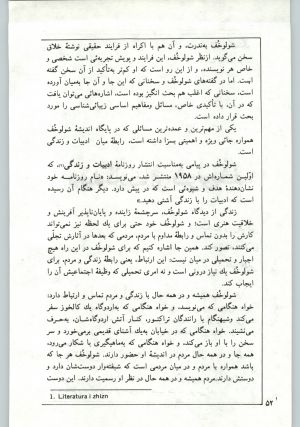 شولوخُف بندرت، و آن هم با اکراه از فرایند حقیقی نوشتهٔ خلاق
سخن می‌گوید. ازنظر شولوخُف، این فرایند و پویش تجربه‌ئی است شخصی و
خاص هر نویسنده، و از این رو است که او کم‌تر به‌تأکید از آن سخن گفته
است. اما در گفته‌های شولوخُف و سخنانی که این جا و آن جا به‌میان آورده
است، سخنانی که اغلب هم بحث انگیز بوده است، اشاره‌هائی می‌توان یافت
که در آن، با تأکیدی خاص، مسائل ومفاهیم اساسی زیبائی‌شناسی را مورد
بحث قرار داده است.
یکی از مهم‌ترین و عمده‌ترین مسائلی که در پایگاه اندیشهٔ شولوخُف
همواره جائی ویژه و اهمیتی بسزا داشته است، رابطهٔ میان ادبیات و زندگی
است.
شولوخُف در پیامی به‌مناسبت انتشار روزنامهٔ ادبیات و زندگی۱، که
اولین شماره‌اش در ۱۹۵۸ منتشر شد، می‌نویسد: «نام روزنامه خود
نشان‌دهندهٔ هدف و شیوه‌ئی است که در پیش دارد. دیگر هنگام آن رسیده
است که ادبیات را با زندگی آشتی دهید.»
زندگی از دیدگاه شولوخُف، سرچشمهٔ زاینده و پایان‌ناپذیر آفرینش و
خلاقیت هنری است؛ و شولوخُف خود حتی برای یك لحظه نیز نمی‌تواند
کارش را بدون تماس و رابطهٔ مداوم با مردم، مردمی که بعدها در آثارش تجلی
می‌کنند، تصور کند. همین جا اشاره کنیم که برای شولوخُف در این راه هیچ
اجبار و تحمیلی در میان نیست: این ارتباط، یعنی رابطهٔ زندگی و مردم، برای
شولوخُف یك نیاز درونی است و نه امری تحمیلی که وظیفهٔ اجتماعیش آن را
ایجاب کند.
شولوخُف همیشه و در همه حال با زندگی و مردم تماس و ارتباط دارد؛
خواه هنگامی که می‌نویسد، و خواه هنگامی که به‌اردوگاه یك کالخوز سفر
می‌کند وشبهنگام با رانندگان تراکتور، کنار آتش اردوگاه‌شان، به‌صرف
می‌نشیند. خواه هنگامی که در خیابان به‌یك آشنای قدیمی برمی‌خورد و سر
سخن را با او باز می‌کند، و خواه هنگامی که به‌ماهیگیری یا شکار می‌رود،
همه جا و در همه حال مردم در اندیشهٔ او حضور دارند. شولوخُف هر جا که
باشد همواره با مردم و در میان مردمی است که شیفته‌وار دوستشان دارد و
دوستش دارند. مردم همیشه و در همه حال در نظر او رسمیت دارند. این دوست
1. Literatura i zhizn
۵۲